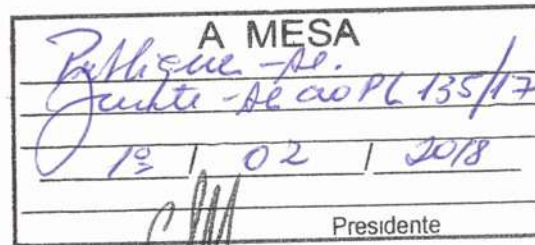 A MESA
Publique-se.
Junte-se ao PL 135/17
1º / 02 / 2018
Presidente